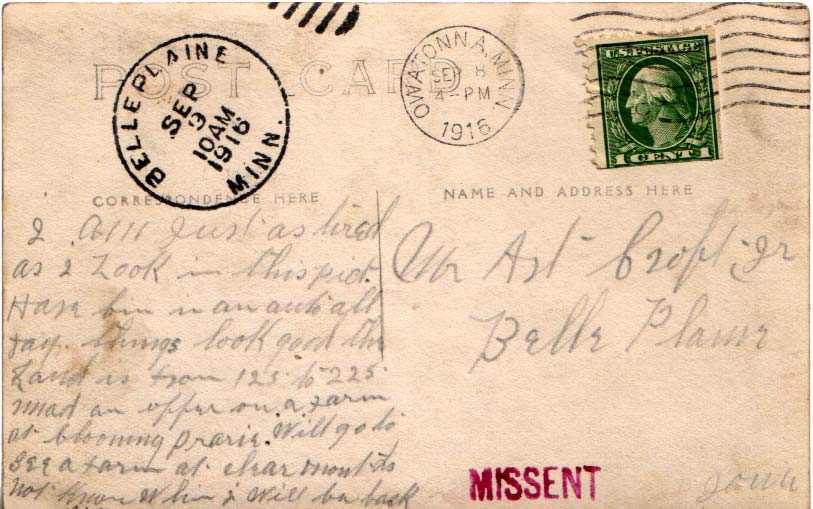 POST CARD
BELLE PLAINE
SEP
9
10 AM
1916
MINN.
OWATONNA, MINN.
SEP 8
4-PM
1916
U.S. POSTAGE
1 CENT 1
CORRESPONDENCE HERE
NAME AND ADDRESS HERE
I am Just as tired
as I Look in this pict.
Have bin in an auto all
day. things look good the
Land is from 125 to 225
mad an offer on a farm
at blooming prarie. Will go to
see a farm at clear mont do
not know when I will be back
Mr Art Croft Jr
Belle Plaine
Iowa
MISSENT